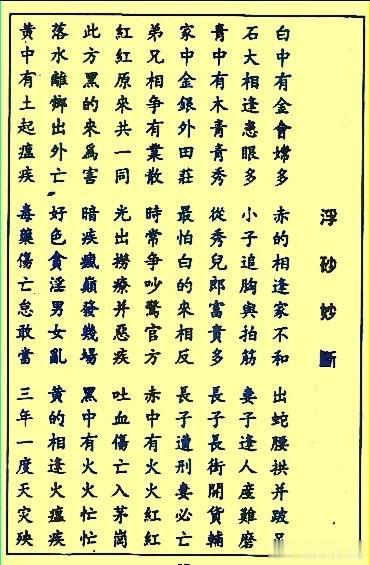 浮砂妙斷
白中有金會嫦多 赤的相逢家不和 出蛇腰拱并跛足
石大相逢患眼多 小子追胸與拍筋 妻子逢人產難磨
青中有木青青秀 從秀兒郎富貴多 長子長街開貨輔
家中金銀外田莊 最怕白的來相反 長子遭刑妻必亡
弟兄相爭有業散 時常爭吵驚官方 赤中有火火紅紅
紅紅原來共一同 光出撈療并惡疾 吐血傷亡入茅崗
此方黑的來爲害 暗疾瘋巔發幾場 黑中有火火忙忙
落水離鄉出外亡 好色貪淫男女亂 黃的相逢火瘟疾
黃中有土起瘟疾 毒藥傷亡怠敢當 三年一度天災殃